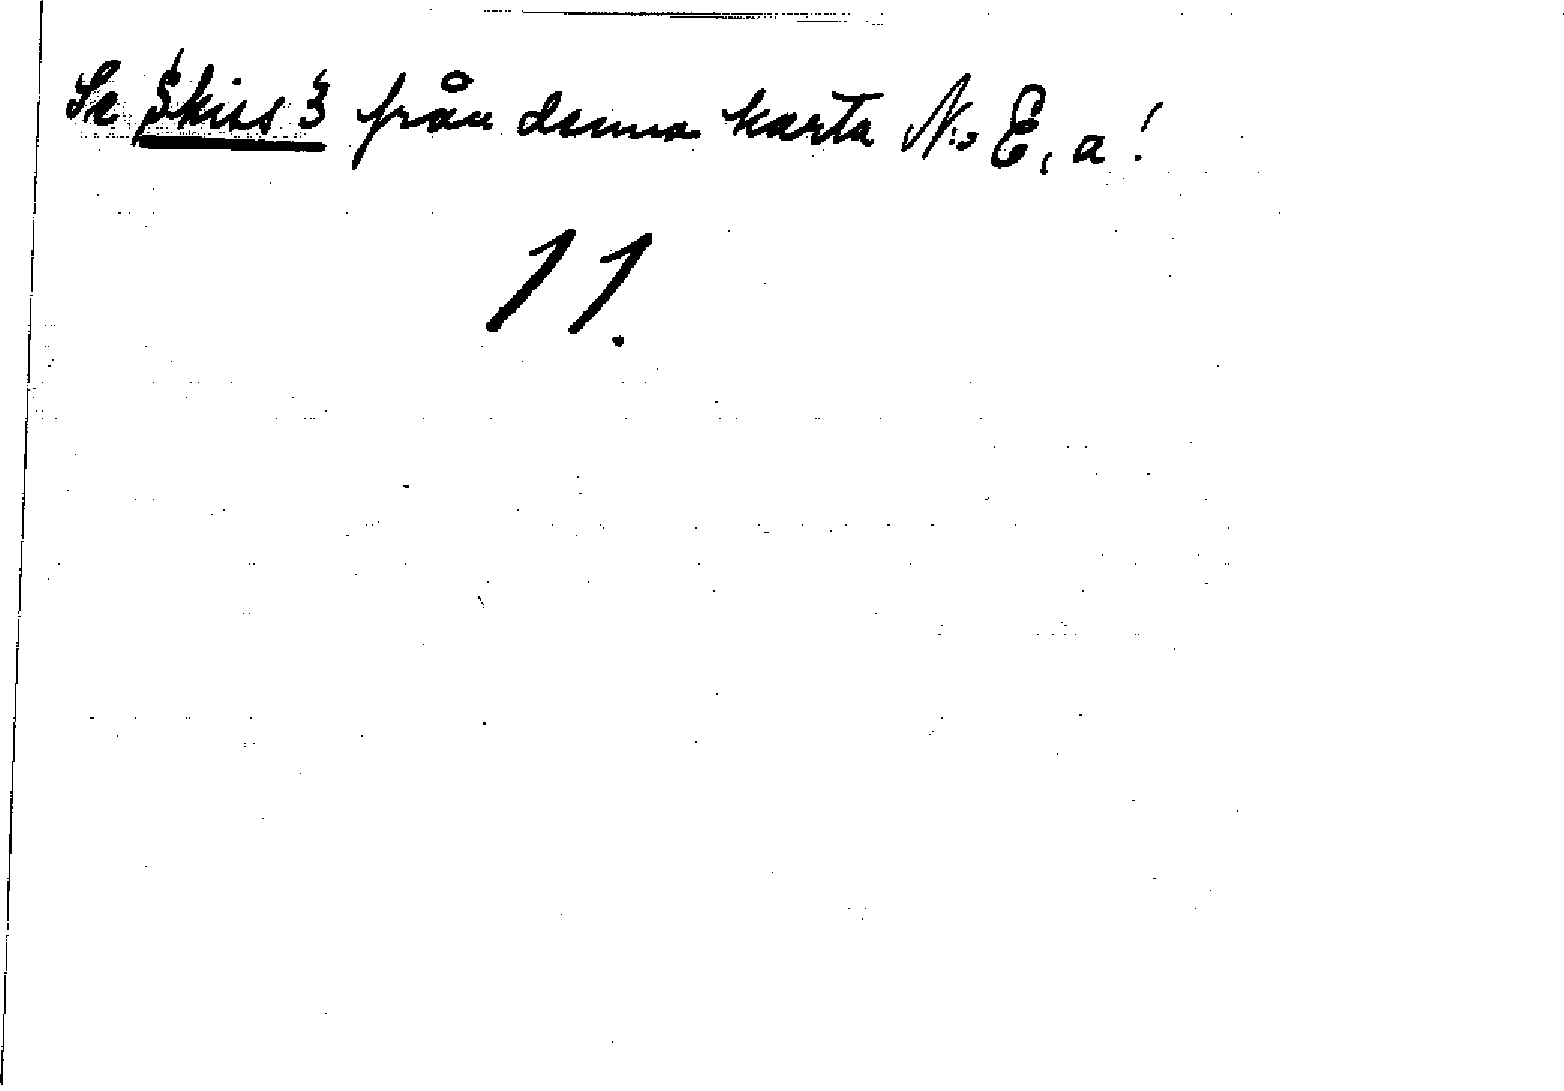 Se Skiss 3 från denna karta No E, a!
11.